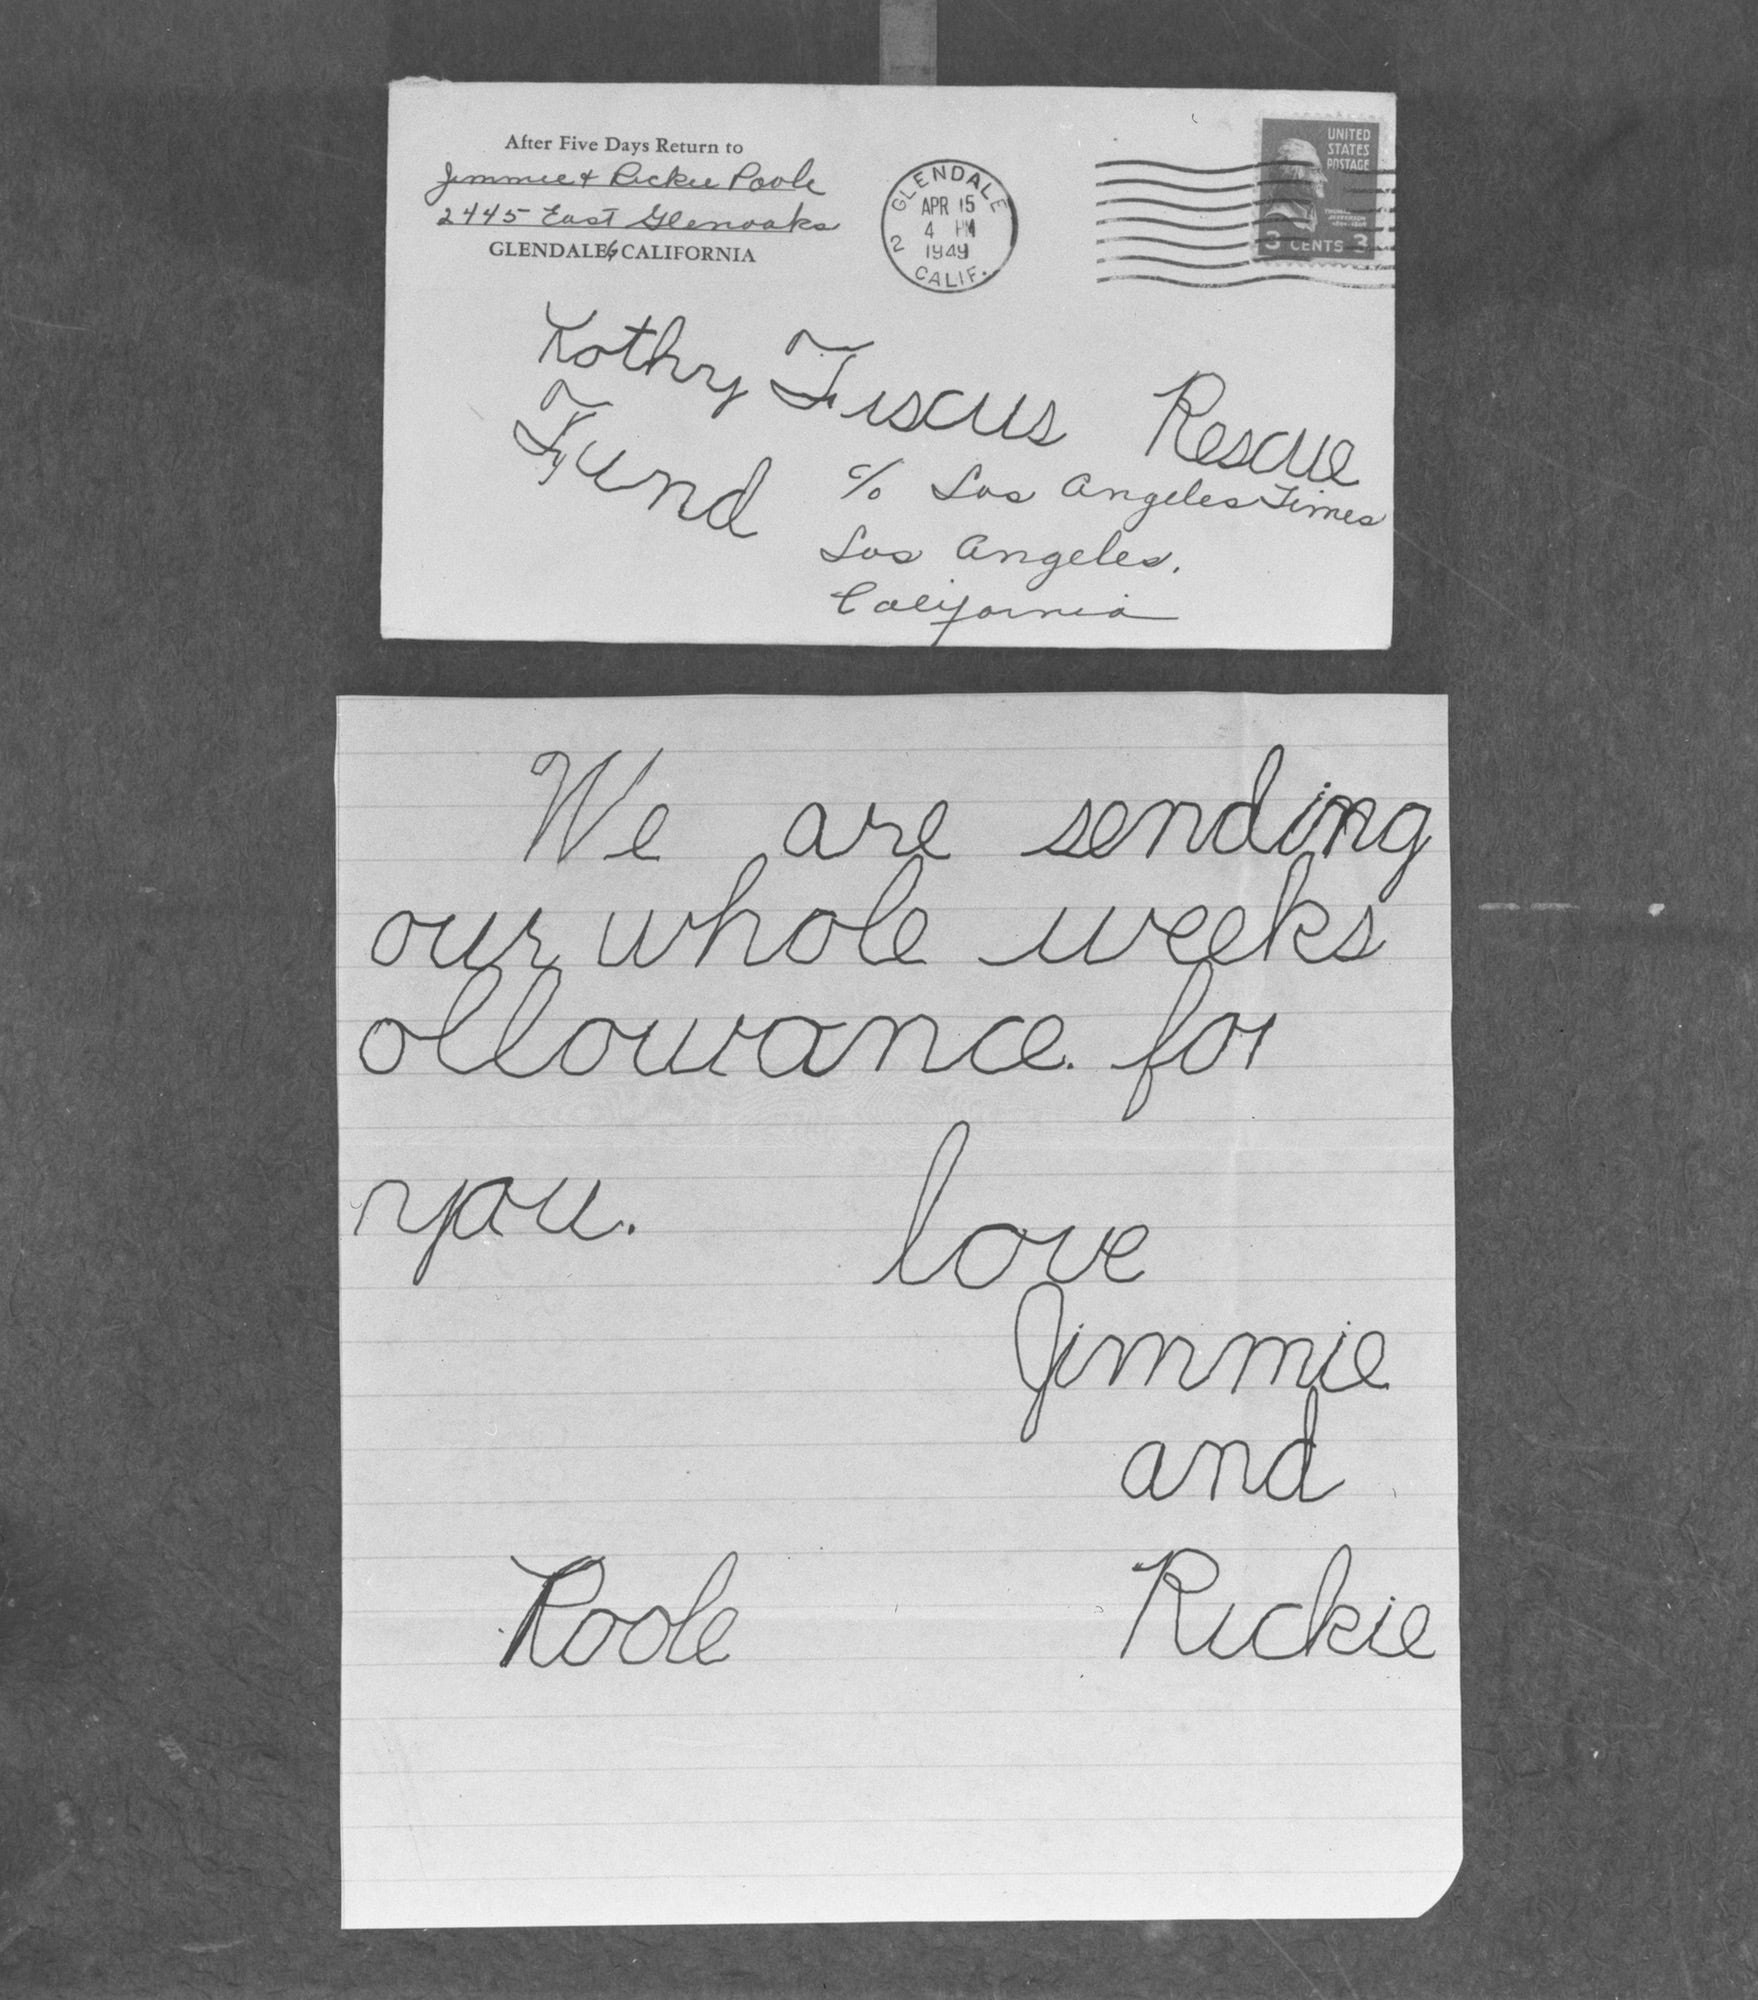 After Five Days Return to
Jimmie & Rickie Poole
2445 East Glenoaks
GLENDALE 6 CALIFORNIA
GLENDALE
APR 15
4 PM
1949
2 CALIF.
UNITED
STATES
POSTAGE
THOMAS
JEFFERSON
3 CENTS 3
Kathy Fiscus Rescue
Fund
c/o Los Angeles Times
Los Angeles.
California
We are sending
our whole weeks
allowance. for
you.
love
Jimmie
and
Poole Rickie